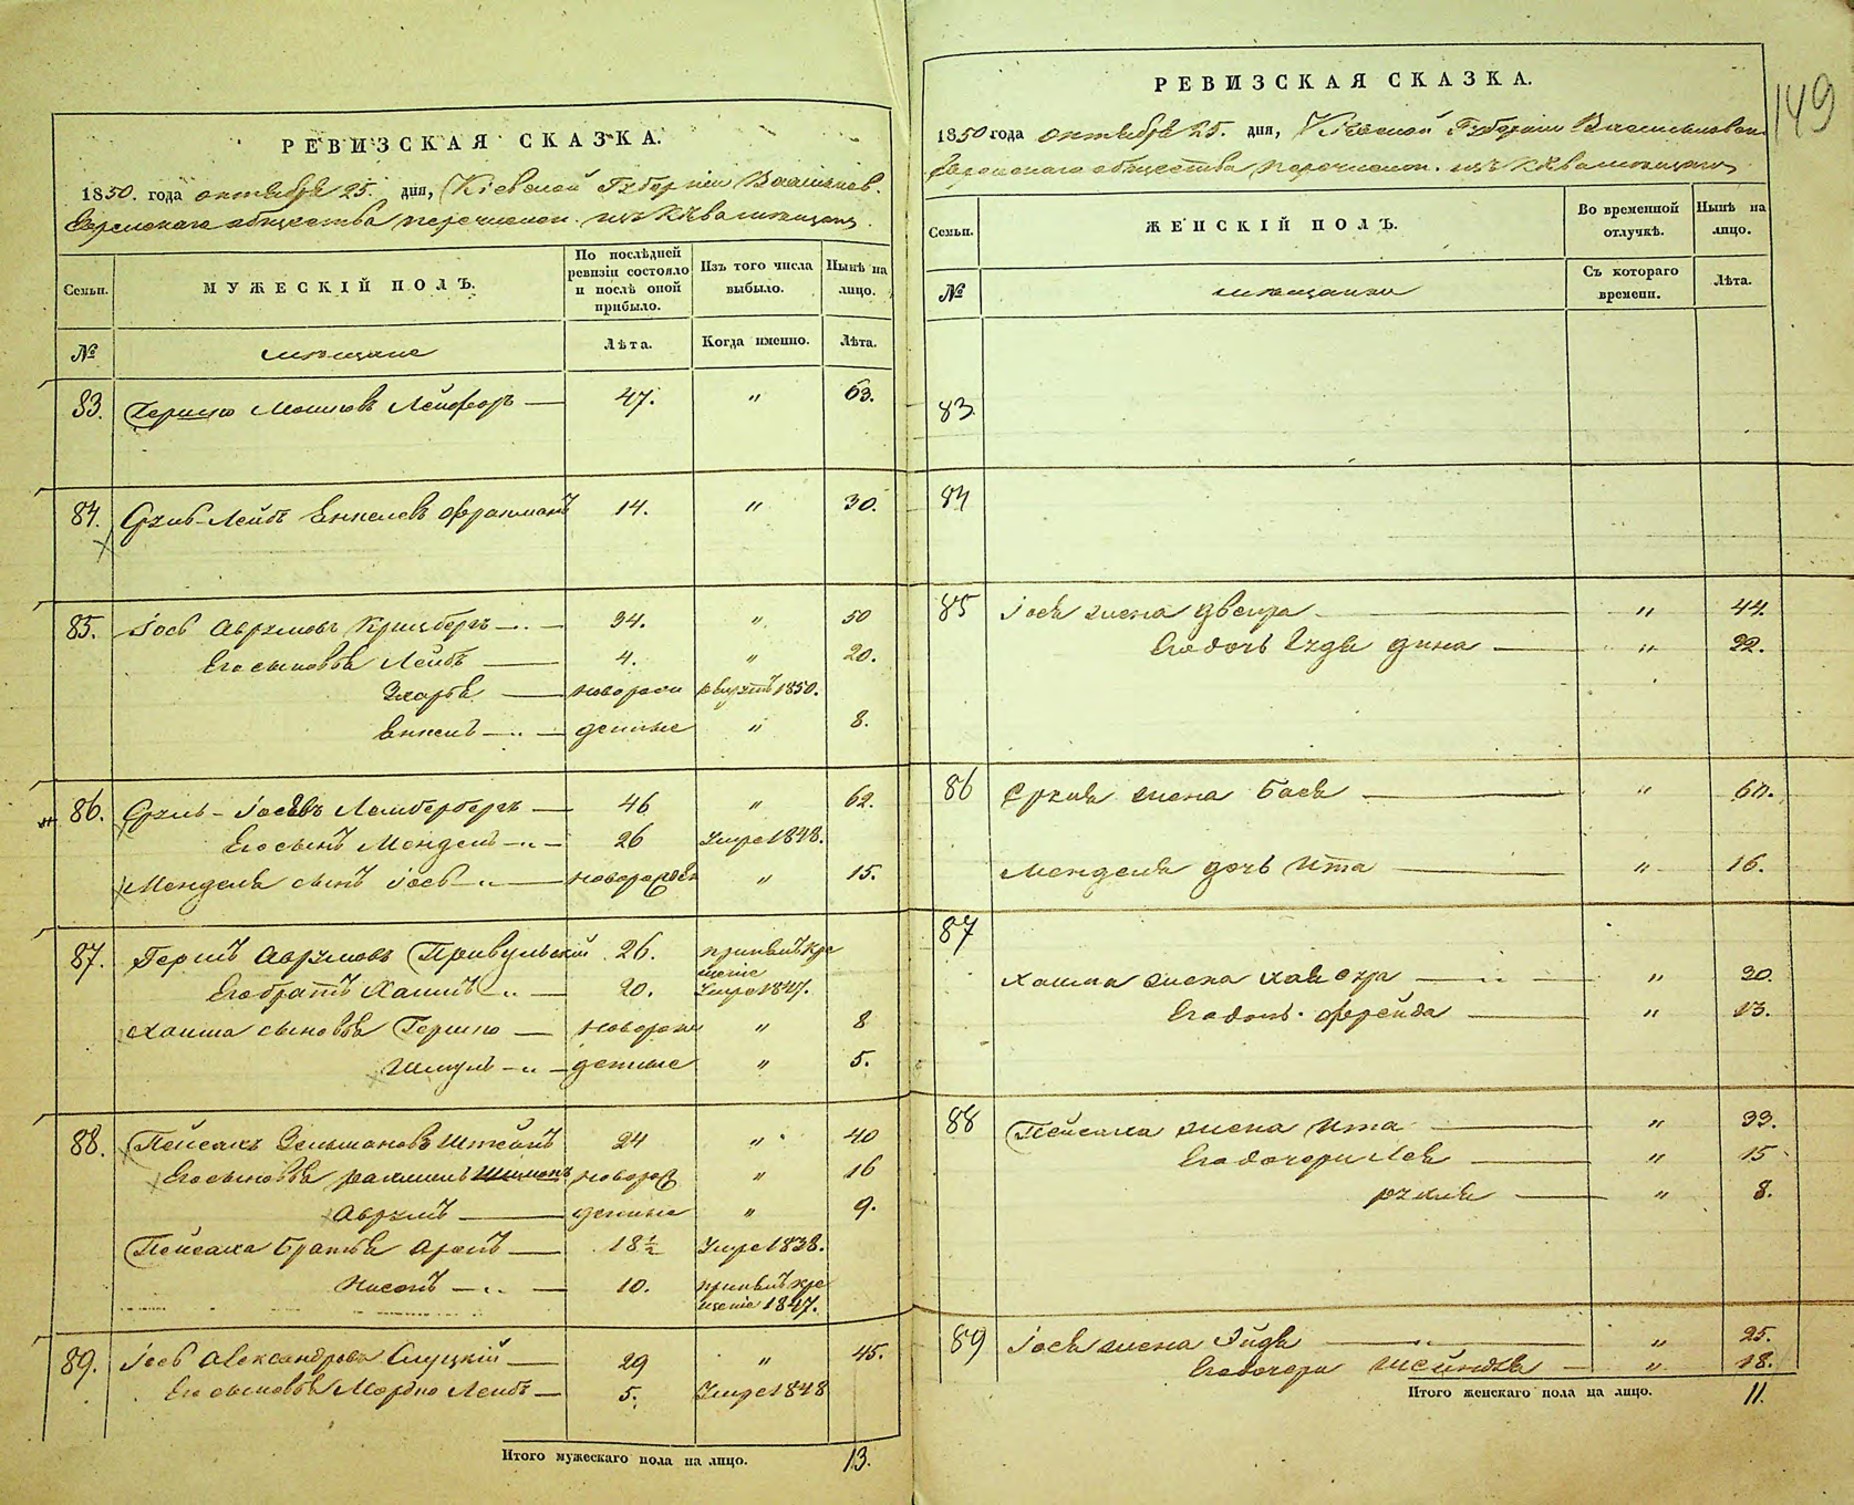 РЕВИЗСКАЯ СКАЗКА.
1850. года октября 25. дня, Кіевской Губерніи Васильков.
Еврейскаго общества перечислен. изъ мѣщанъ
Семьи. МУЖЕСКІЙ ПОЛЪ. По послѣдней ревизіи состояло и послѣ оной прибыло. Изъ того числа выбыло. Нынѣ на лицо.
№ мѣщане Лѣта. Когда именно. Лѣта.
83. Гершко Мошковъ 47. " 63.
84. Сруль-Лейбъ Янкелевъ 14. " 30.
85. Іось Аврумовъ 34. " 50
Его сыновья Лейбъ 4. " 20.
новорож 1850.
Янкель денные " 8.
86. Сруль-Іосевъ 46 " 62.
Его сынъ Мендель 26 Умре 1848.
Менделя сынъ Іось новорожден " 15.
87. Гершъ Аврумовъ 26. принялъ кре
щеніе
Его братъ Хаимъ 20. Умре 1847.
Хаима сыновья Гершко новорож " 8
Шмуль денные " 5.
88. Пейсахъ Зельмановъ Штейнъ 24 " 40
Его сыновья новорож " 16
Аврумъ денные " 9.
Пейсаха братья Аронъ 18½ Умре 1838.
Нисонъ 10. принялъ кре
щеніе 1847.
89. Іось Александровъ Слуцкій 29 " 45.
Его сыновья Мордко Лейбъ 5. Умре 1848
Итого мужескаго пола на лицо. 13.
149
РЕВИЗСКАЯ СКАЗКА.
1850 года октября 25. дня, Кіевской Губерніи Васильковск.
Еврейскаго общества перечислен. изъ мѣщанъ
Семьи. ЖЕНСКІЙ ПОЛЪ. Во временной отлучкѣ. Нынѣ на лицо.
№ мѣщанки Съ котораго времени. Лѣта.
83.
84
85 Іося жена Двейра " 44.
Его дочь Дина " 22.
86 Сруля жена Бася " 60.
Менделя дочь Ита " 16.
87
Хаима жена Хая Сура " 30.
Его дочь Фрейда " 13.
88 Пейсаха жена Ита " 33.
Его дочери Лея " 15
Рухля " 8.
89 Іося жена Эйдя " 25.
Его дочери Шейндля " 18.
Итого женскаго пола на лицо. 11.